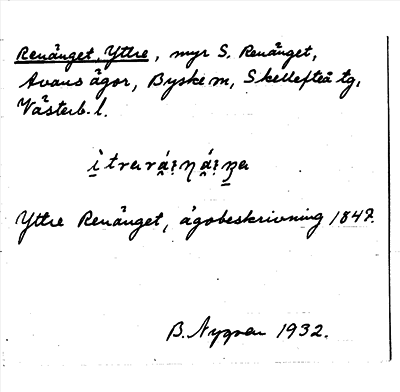 Renånget, Yttre, myr S. Renånget,
Avans ägor, Byske m, Skellefteå tg,
Västerb. l.
Yttre Renånget, ägobeskrivning 1847.
B. Nygren 1932.